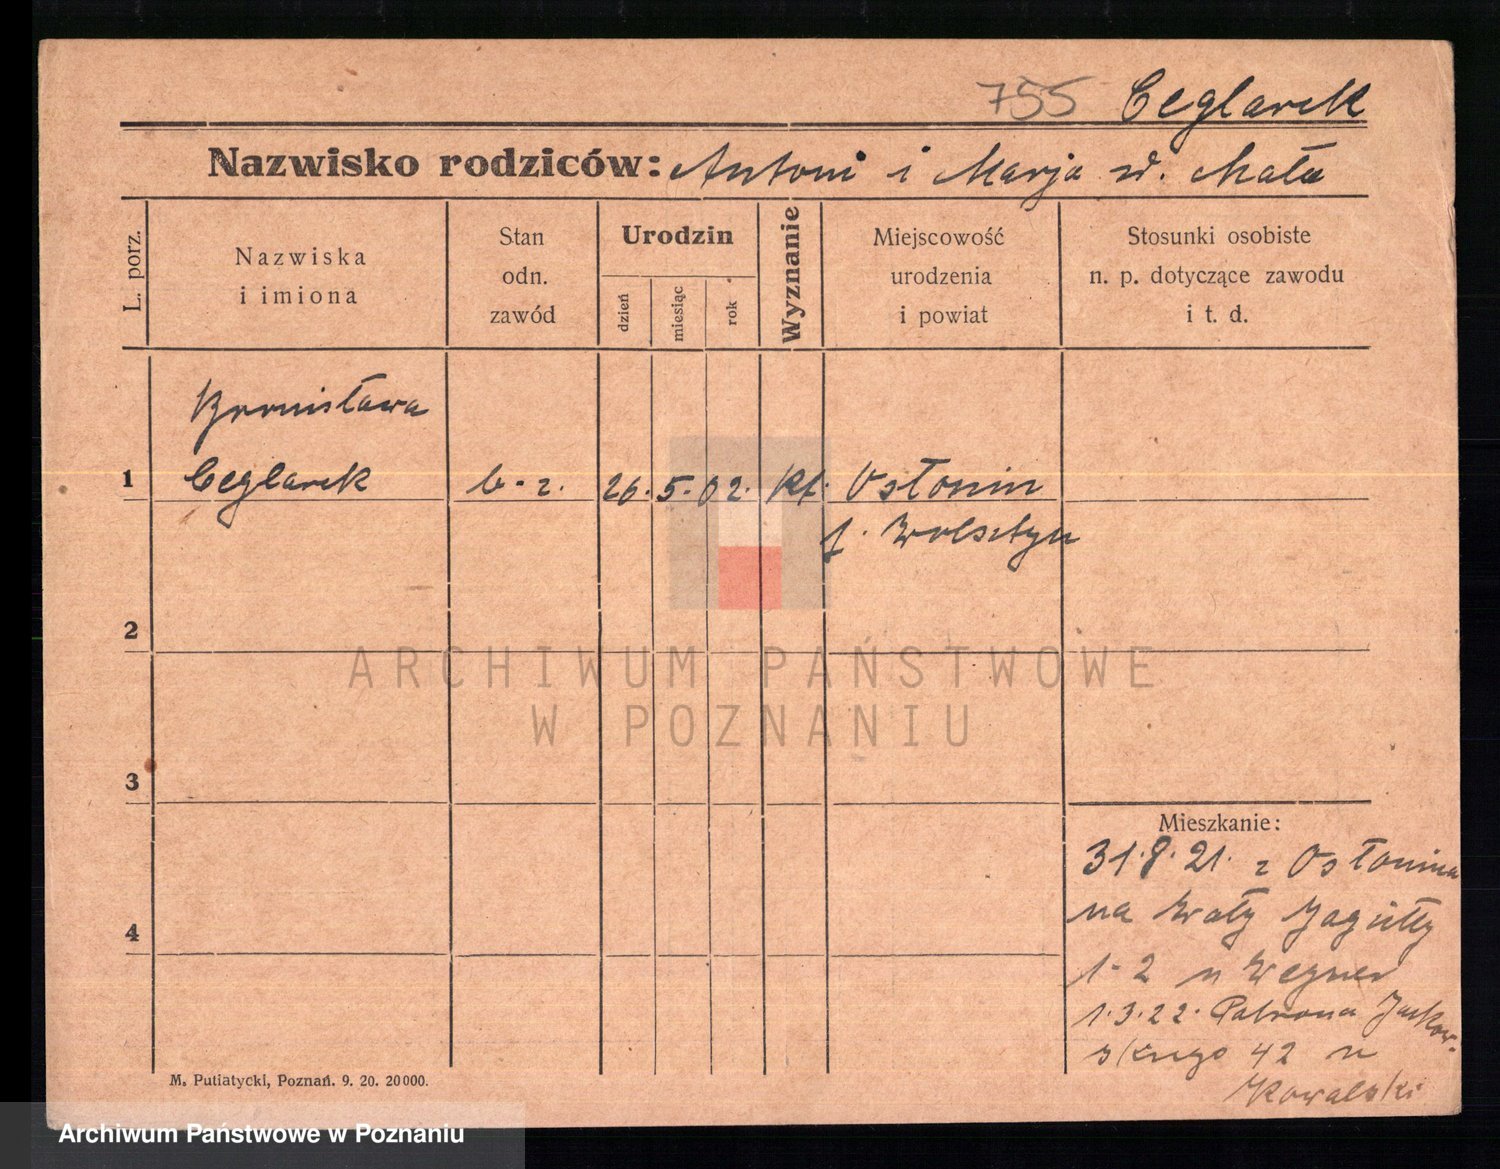 755 Ceglarek
Nazwisko rodziców: Antoni i Marja d. Mała
L. porz.
Nazwiska
i imiona
Stan
odn.
zawód
Urodzin
dzień
miesiąc
rok
Wyznanie
Miejscowość
urodzenia
i powiat
Stosunki osobiste
n. p. dotyczące zawodu
i t. d.
Bronisława
1 Ceglarek b-z. 26. 5. 02. kt. Osłonin
p. Wolsztyn
2
3
4
Mieszkanie:
31.8.21. z Osłonina
na Wały Jagiełły
1-2 u Wegner
1.3.22. Patrona Jackow-
skiego 42 u
Kowalski
M. Putiatycki, Poznań. 9. 20. 20000.
ARCHIWUM PAŃSTWOWE
W POZNANIU
Archiwum Państwowe w Poznaniu